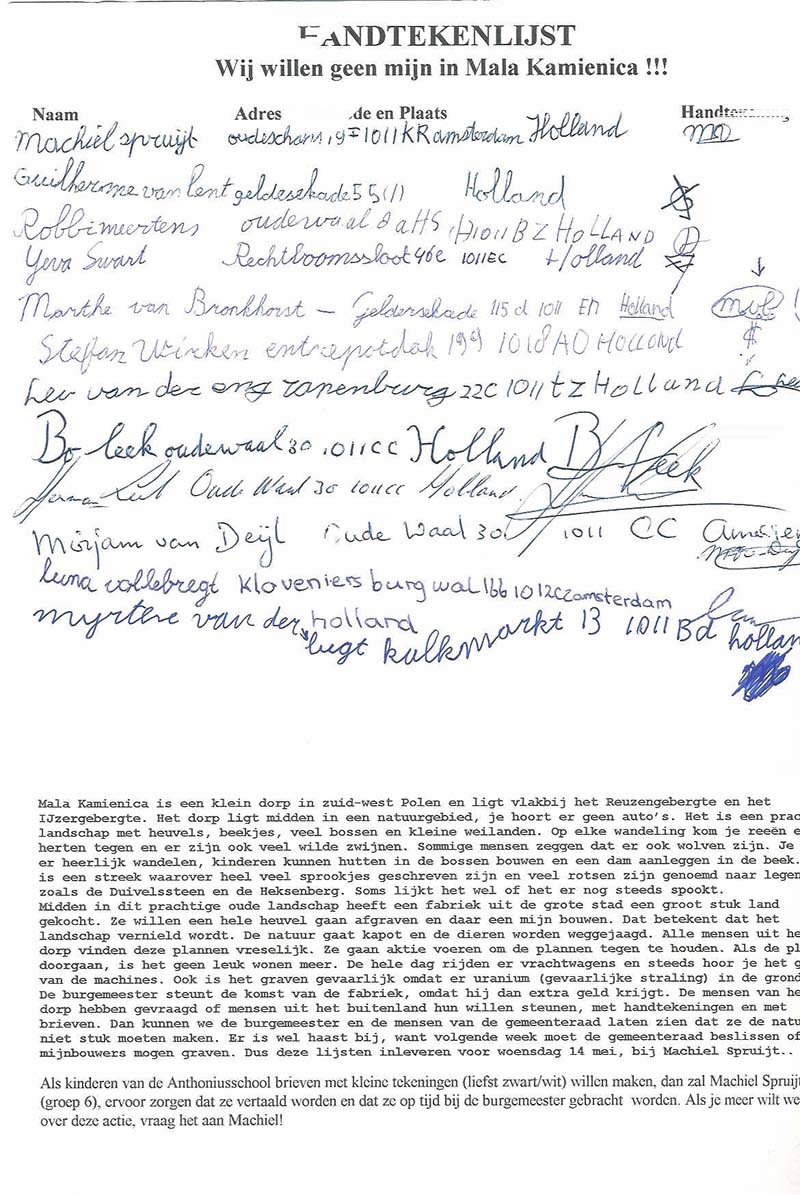 HANDTEKENLIJST
Wij willen geen mijn in Mala Kamienica !!!
Naam Adres de en Plaats
Machiel spruijt oudeschans 1011KR amsterdam Holland
Guilherme van lent geldesekade 55 (1) Holland
Robbi meertens oudewaal 8 a HS 1011 BZ HOLLAND
Yeva Swart Rechtboomssloot 46c 1011EC Holland
Marthe van Bronkhorst – Gelderskade 115 d 1011 EN Holland mvb
Stefan Wirken entrepotdok 199 1018 AD HOLLAND
Lev van der eng rapenburg 22C 1011 tZ Holland
Bo leek oudewaal 30 1011CC Holland B Leek
Herman Oude Waal 30 1011CC Holland
Mirjam van Deijl Oude Waal 30 1011 CC
luna vollebregt kloveniers burgwal 166 1012CZ amsterdam
myrthe van der lugt kalkmarkt 13 1011 Bd hollan
holland
Mala Kamienica is een klein dorp in zuid-west Polen en ligt vlakbij het Reuzengebergte en het
IJzergebergte. Het dorp ligt midden in een natuurgebied, je hoort er geen auto's. Het is een prac
landschap met heuvels, beekjes, veel bossen en kleine weilanden. Op elke wandeling kom je reeën e
herten tegen en er zijn ook veel wilde zwijnen. Sommige mensen zeggen dat er ook wolven zijn. Je
er heerlijk wandelen, kinderen kunnen hutten in de bossen bouwen en een dam aanleggen in de beek.
is een streek waarover heel veel sprookjes geschreven zijn en veel rotsen zijn genoemd naar legen
zoals de Duivelssteen en de Heksenberg. Soms lijkt het wel of het er nog steeds spookt.
Midden in dit prachtige oude landschap heeft een fabriek uit de grote stad een groot stuk land
gekocht. Ze willen een hele heuvel gaan afgraven en daar een mijn bouwen. Dat betekent dat het
landschap vernield wordt. De natuur gaat kapot en de dieren worden weggejaagd. Alle mensen uit he
dorp vinden deze plannen vreselijk. Ze gaan aktie voeren om de plannen tegen te houden. Als de pl
doorgaan, is het geen leuk wonen meer. De hele dag rijden er vrachtwagens en steeds hoor je het g
van de machines. Ook is het graven gevaarlijk omdat er uranium (gevaarlijke straling) in de grond
De burgemeester steunt de komst van de fabriek, omdat hij dan extra geld krijgt. De mensen van he
dorp hebben gevraagd of mensen uit het buitenland hun willen steunen, met handtekeningen en met
brieven. Dan kunnen we de burgemeester en de mensen van de gemeenteraad laten zien dat ze de natu
niet stuk moeten maken. Er is wel haast bij, want volgende week moet de gemeenteraad beslissen of
mijnbouwers mogen graven. Dus deze lijsten inleveren voor woensdag 14 mei, bij Machiel Spruijt..
Als kinderen van de Anthoniusschool brieven met kleine tekeningen (liefst zwart/wit) willen maken, dan zal Machiel Spruijt
(groep 6), ervoor zorgen dat ze vertaald worden en dat ze op tijd bij de burgemeester gebracht worden. Als je meer wilt we
over deze actie, vraag het aan Machiel!